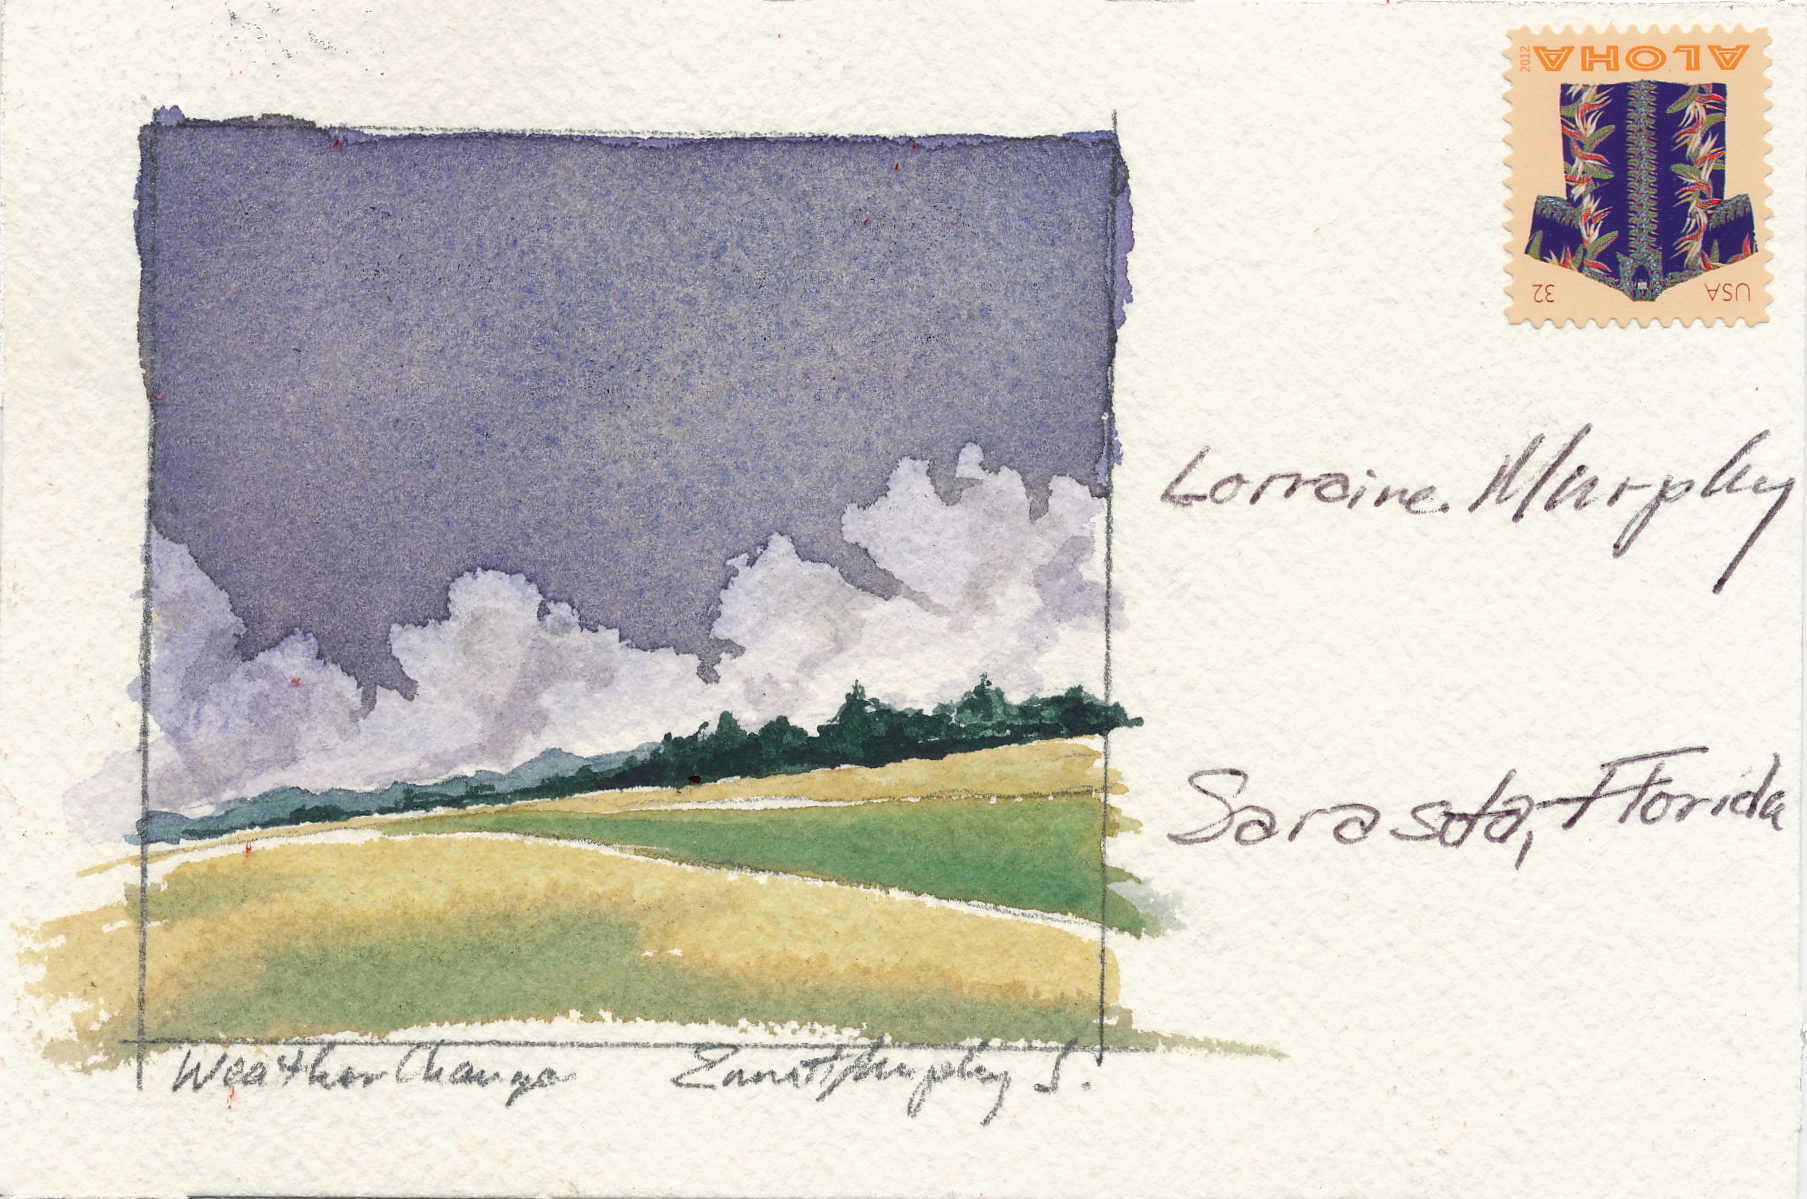 ALOHA
2012
32
USA
Lorraine Murphy
Sarasota, Florida
Weather Change Ernest Murphy S.